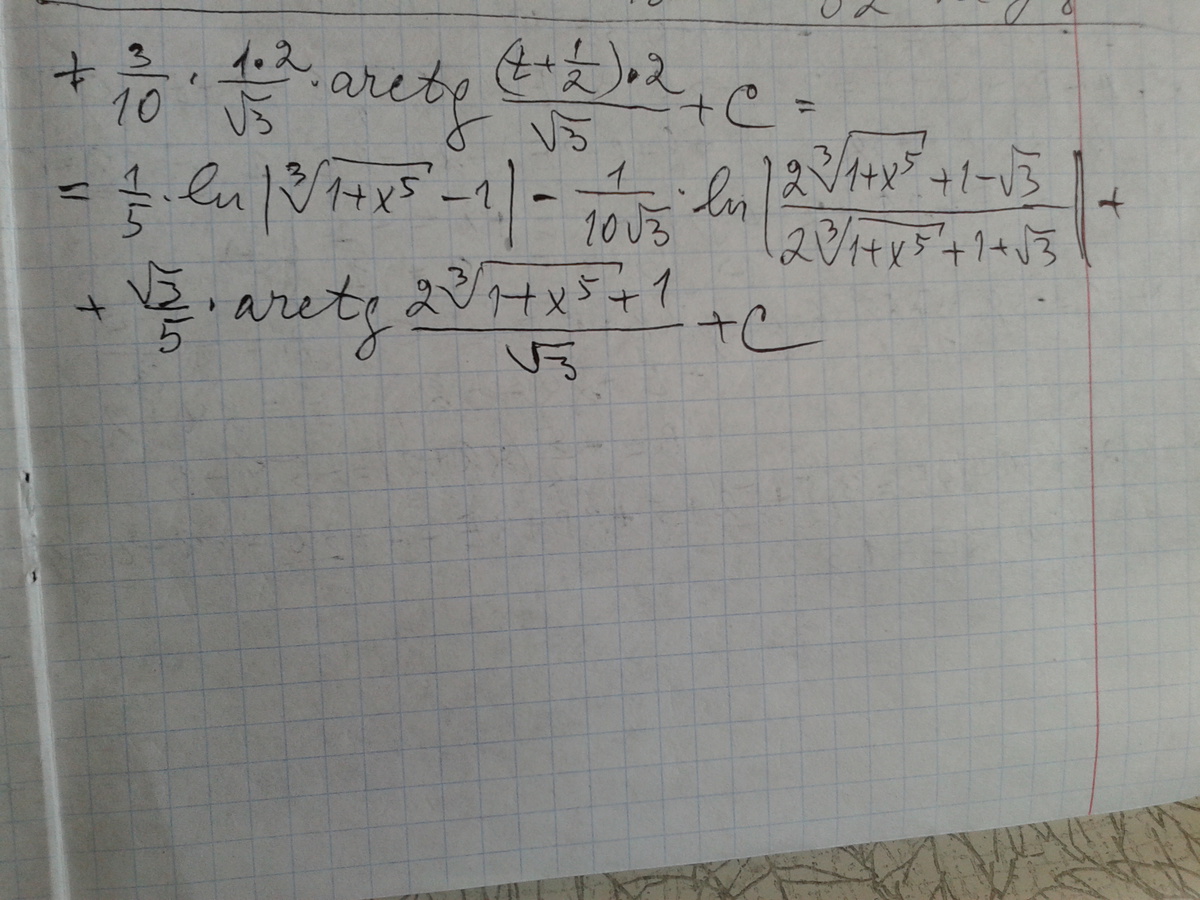 + 3/10 · 1·2/√3 · arctg (t+1/2)·2/√3 + C =
= 1/5 · ln |∛(1+x⁵) - 1| - 1/(10√3) · ln |(2∛(1+x⁵) + 1 - √3)/(2∛(1+x⁵) + 1 + √3)| +
+ √3/5 · arctg (2∛(1+x⁵) + 1)/√3 + C